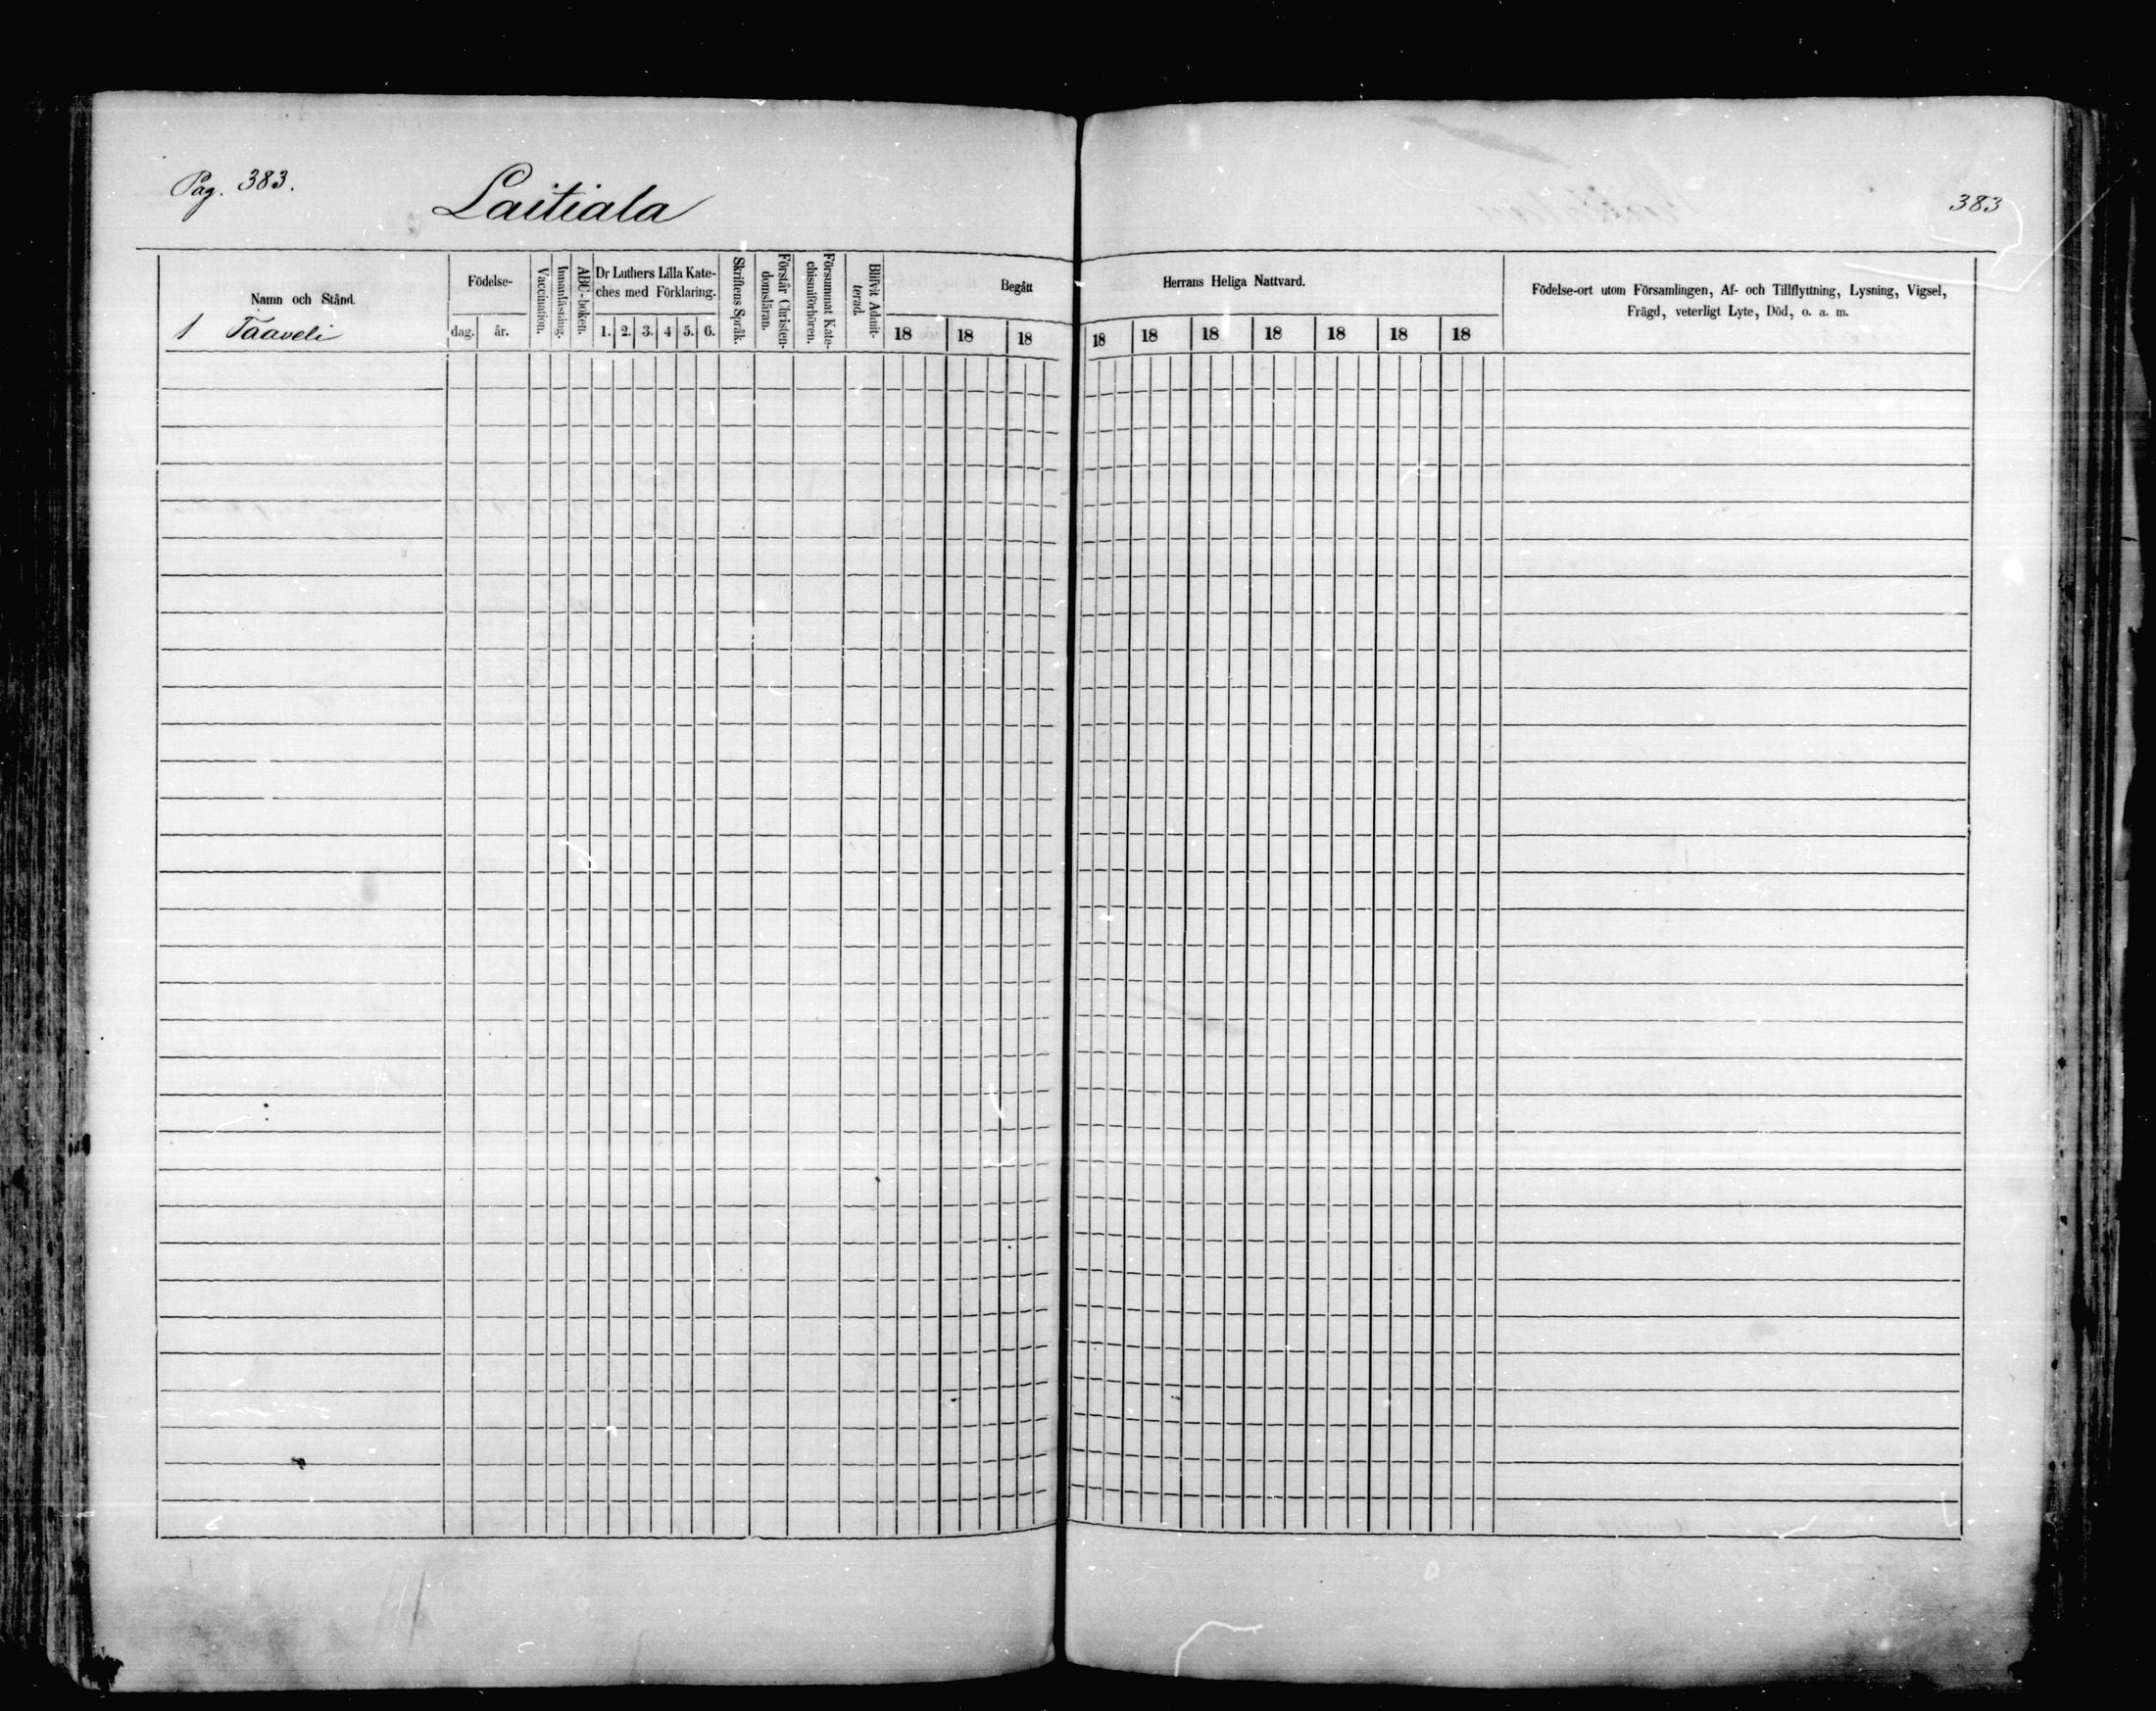 Pag. 383.
Laitiala
383
Namn och Stånd.
1 Taaveli
Födelse-
dag.
år.
Vaccination.
Innanläsning.
ABC-boken.
Dr Luthers Lilla Kate-
ches med Förklaring.
1. 2. 3. 4 5. 6.
Skriftens Språk.
Förstår Christen-
domsläran.
Försummat Kate-
chismiförhören.
Blifvit Admit-
terad.
Begått
18 18 18
Herrans Heliga Nattvard.
18 18 18 18 18 18 18
Födelse-ort utom Församlingen, Af- och Tillflyttning, Lysning, Vigsel,
Frägd, veterligt Lyte, Död, o. a. m.